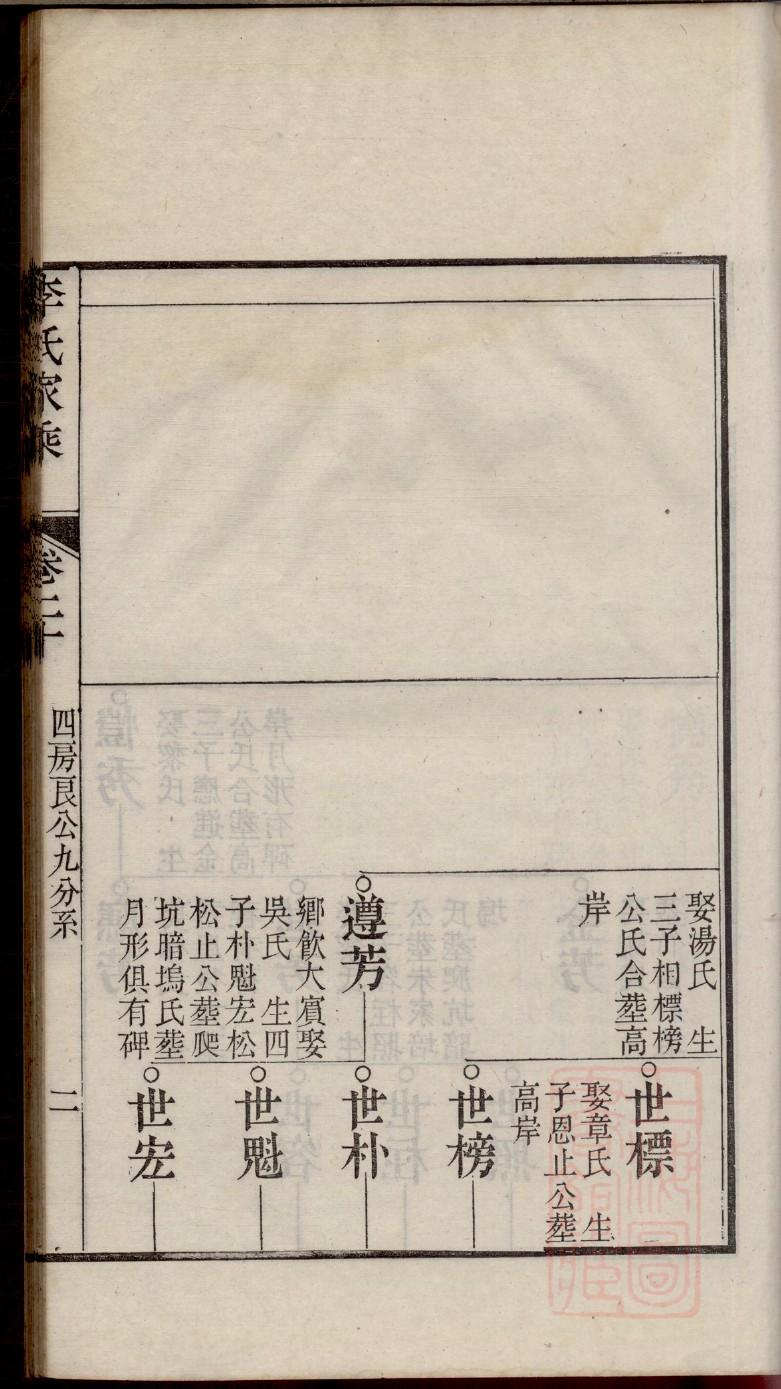 娶湯氏　生
三子相標榜
公氏合塟高
岸
世標
娶章氏　生
子恩止公塟
高岸
世榜
遵芳
鄉飮大賓娶
吳氏　生四
子朴魁宏松
松止公塟爬
坑暗塢氏塟
月形俱有碑
世朴
世魁
世宏
李氏家乘
卷二十
四房良公九分系
二